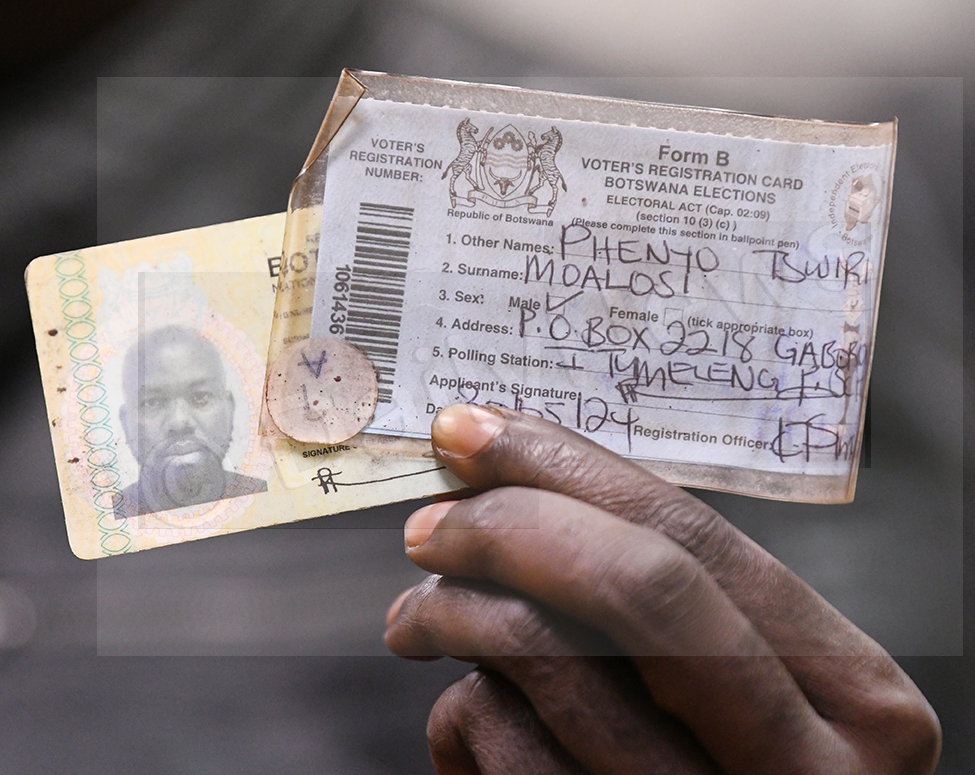 VOTER'S
REGISTRATION
NUMBER:
1061436
Republic of Botswana
Form B
VOTER'S REGISTRATION CARD
BOTSWANA ELECTIONS
ELECTORAL ACT (Cap. 02:09)
(section 10 (3) (c) )
(Please complete this section in ballpoint pen)
Independent
1. Other Names: PHENYO TSWIRI
2. Surname: MOALOSI
3. Sex: Male ✓ Female (tick appropriate box)
4. Address: P.O.BOX 2218 GABORO
5. Polling Station:
Applicant's Signature
/05/24
Registration Officer
SIGNATURE